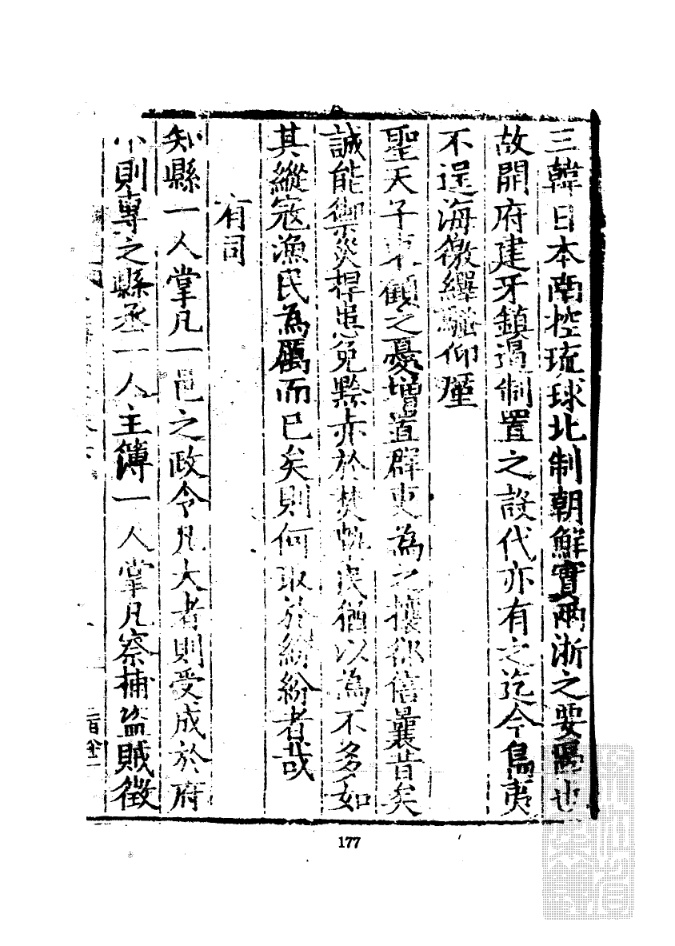 三韓日本南控琉球北制朝鮮實兩浙之要害也
故開府建牙鎮遏制置之設代亦有之迄今島夷
不逞海徼繹騷仰廑
聖天子東顧之憂增置群吏為之攘卻信曩昔矣
誠能禦災捍患免黔赤於焚 民猶以為不多如
其縱寇漁民為厲而已矣則何取於紛紛者哉
有司
知縣一人掌凡一邑之政令凡大者則受成於府
小則專之縣丞一人主簿一人掌凡察捕盜賊徵
177